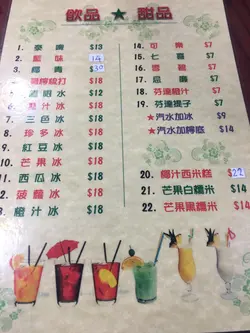 飲品 ★ 甜品
1. 泰 $13
2. 14
3. 椰青 $30
檸檬梳打 $18
水 $18
6. 汁冰 $18
7. 三色冰 $18
8. 珍多冰 $18
9. 紅豆冰 $18
10. 芒果冰 $18
11. 西瓜冰 $18
12. 菠蘿冰 $18
13. 橙汁冰 $18
14. 可樂 $7
15. 七喜 $7
16. 雪碧 $7
17. 忌廉 $7
18. 芬達橙汁 $7
19. 芬達提子 $7
★汽水加冰 $9
★汽水加檸底 $9
20. 椰汁西米糕 $22
21. 芒果白糯米 $
22. 芒果黑糯米 $